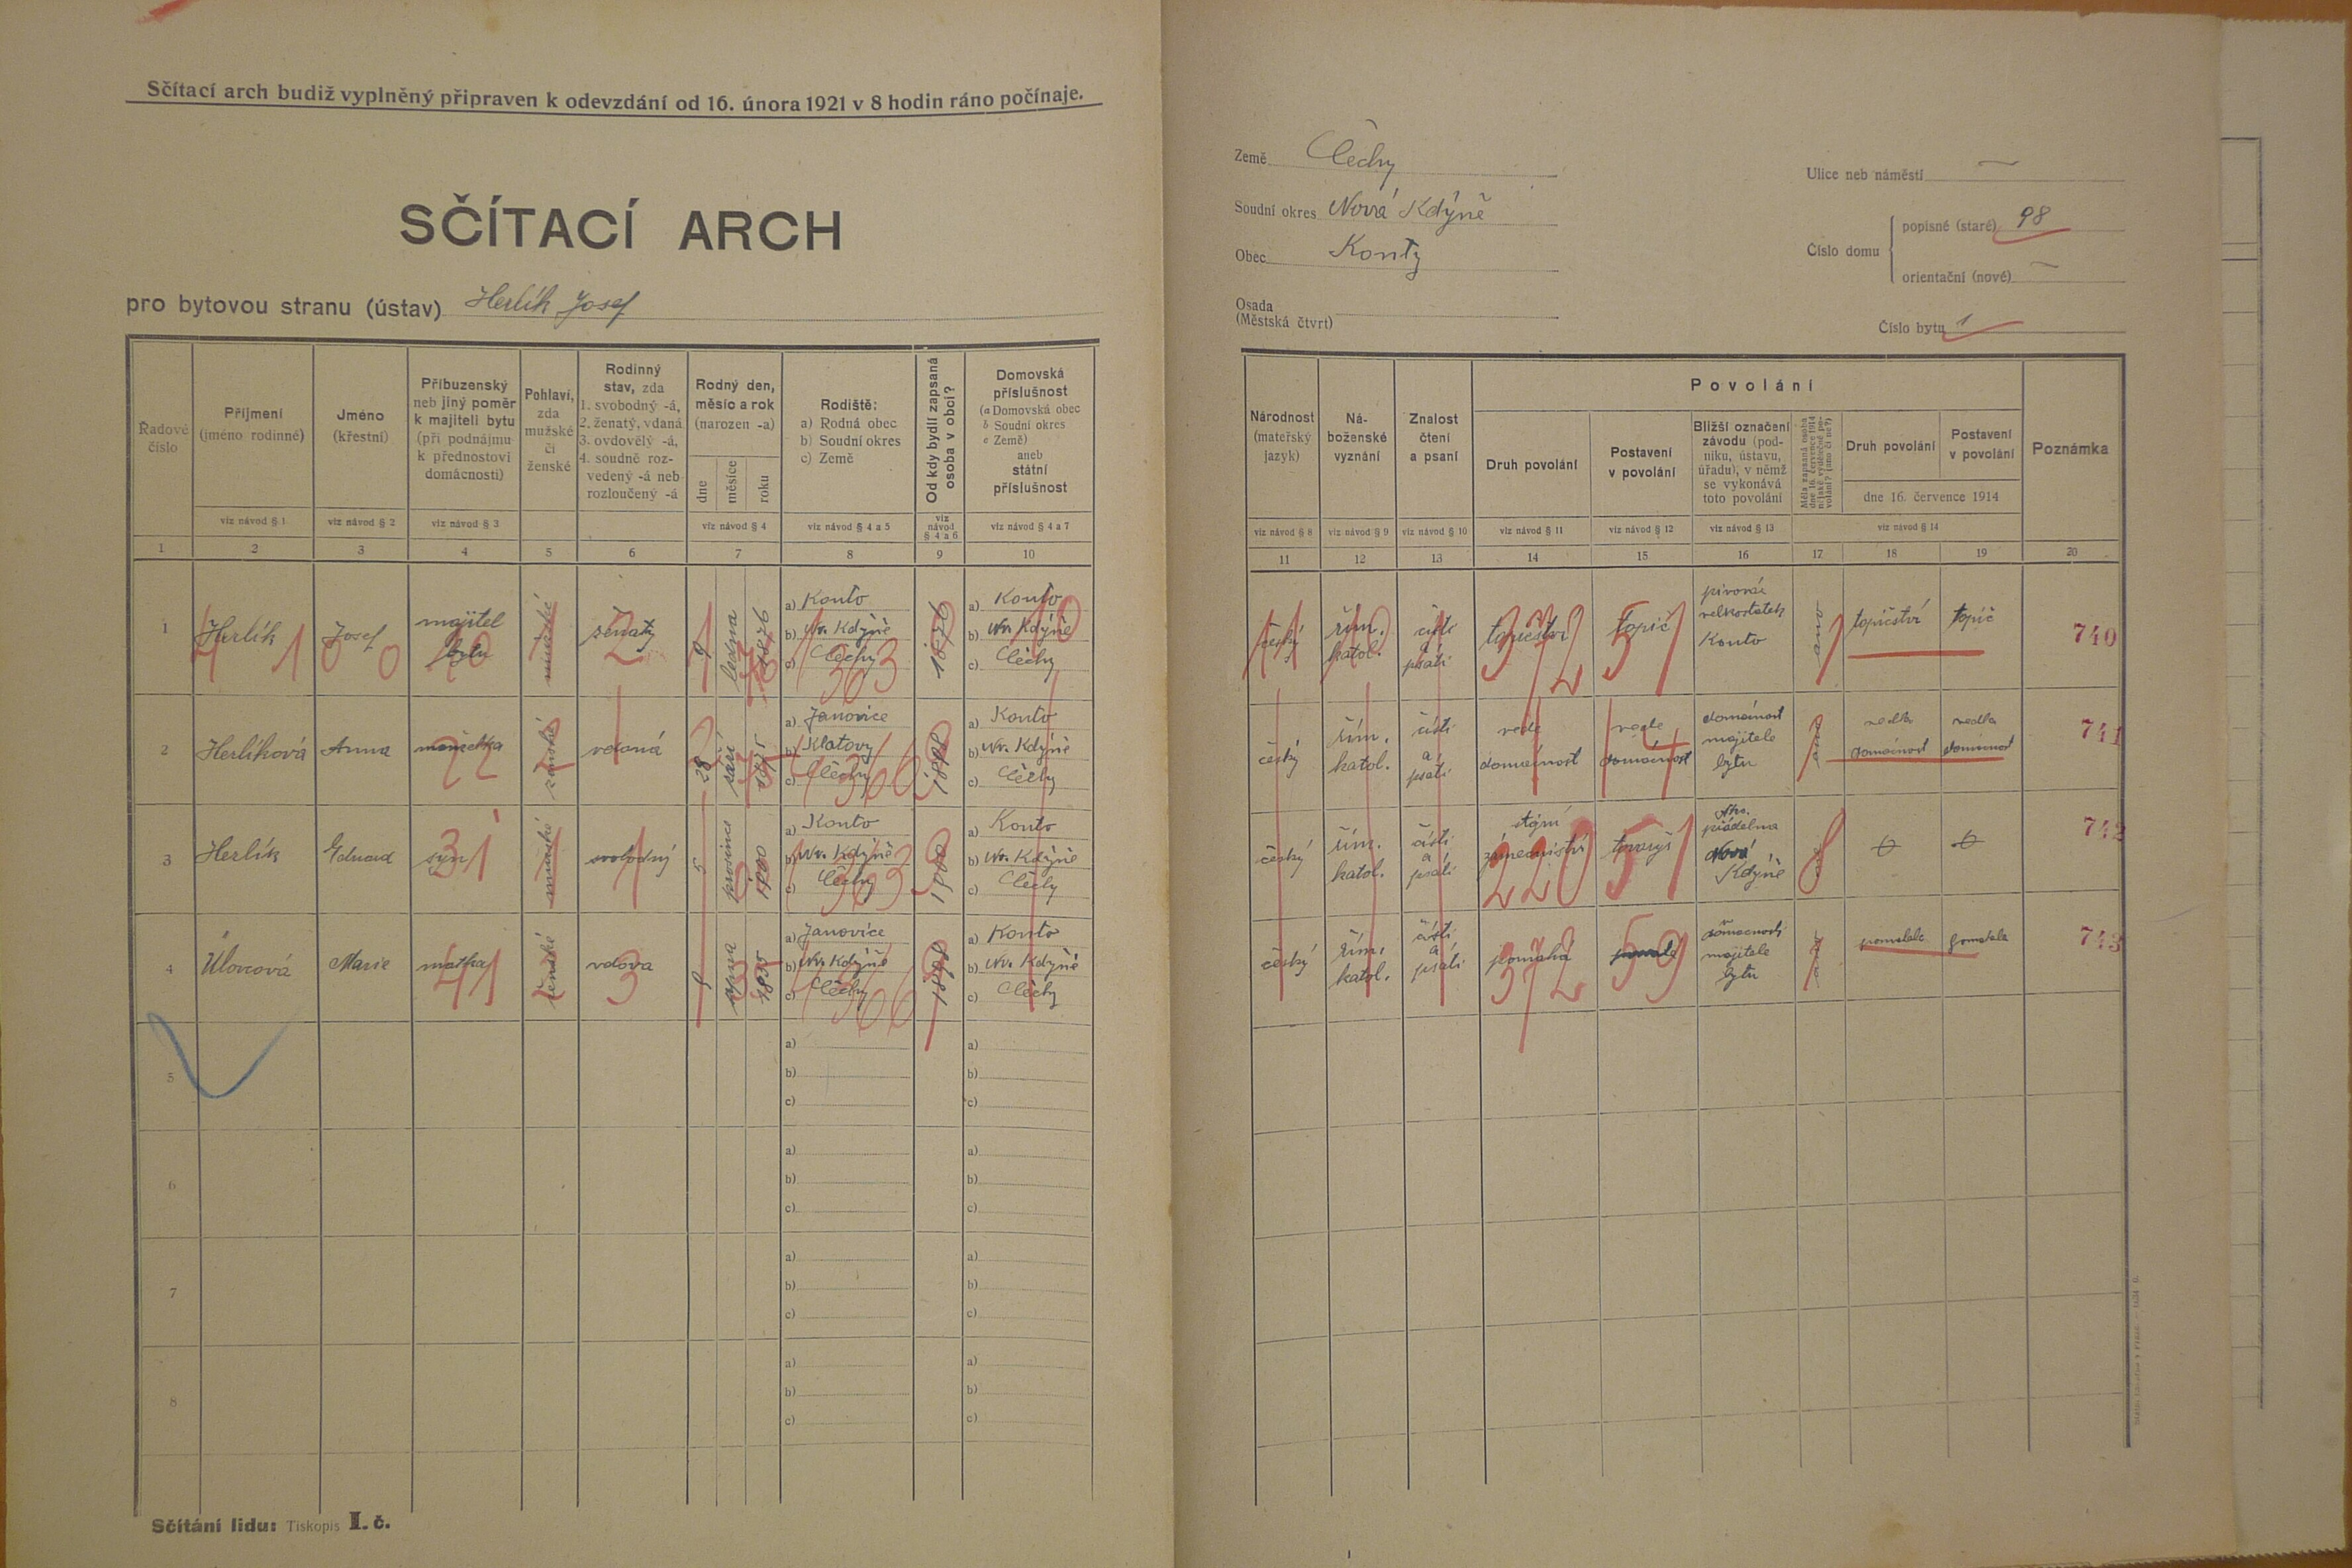 Sčítací arch budiž vyplněný připraven k odevzdání od 16. února 1921 v 8 hodin ráno počínaje.
SČÍTACÍ ARCH
pro bytovou stranu (ústav) Herlík Josef
Řadové číslo
Příjmení
(jméno rodinné)
viz návod § 1
Jméno
(křestní)
viz návod § 2
Příbuzenský
neb jiný poměr
k majiteli bytu
(při podnájmu
k přednostovi
domácnosti)
viz návod § 3
Pohlaví,
zda
mužské
či
ženské
Rodinný
stav, zda
1. svobodný -á,
2. ženatý, vdaná
3. ovdovělý -á,
4. soudně roz-
vedený -á neb
rozloučený -á
Rodný den,
měsíc a rok
(narozen -a)
dne
měsíce
roku
viz návod § 4
Rodiště:
a) Rodná obec
b) Soudní okres
c) Země
viz návod § 4 a 5
Od kdy bydlí zapsaná
osoba v obci?
viz
návod
§ 4 a 6
Domovská
příslušnost
(a Domovská obec
b Soudní okres
c Země)
aneb
státní
příslušnost
viz návod § 4 a 7
1 2 3 4 5 6 7 8 9 10
1 Herlík Josef majitel bytu mužské ženatý 9 ledna 1876
a) Konto
b) Nv. Kdýně
c) Čechy
1876
a) Konto
b) Nv. Kdýně
c) Čechy
2 Herlíková Anna manželka ženské vdaná 28 září
a) Janovice
b) Klatovy
c) Čechy
1898
a) Konto
b) Nv. Kdýně
c) Čechy
3 Herlík Eduard syn mužské svobodný 5 prosince 1900
a) Konto
b) Nv. Kdýně
c) Čechy
1900
a) Konto
b) Nv. Kdýně
c) Čechy
4 Marie matka ženské vdova 9 1835
a) Janovice
b) Nv. Kdýně
c) Čechy
1898
a) Konto
b) Nv. Kdýně
c) Čechy
5
a)
b)
c)
a)
b)
c)
6
a)
b)
c)
a)
b)
c)
7
a)
b)
c)
a)
b)
c)
8
a)
b)
c)
a)
b)
c)
Sčítání lidu: Tiskopis I. č.
Země Čechy
Soudní okres Nová Kdýně
Obec Kouty
Osada
(Městská čtvrt)
Ulice neb náměstí —
Číslo domu
popisné (staré) 98
orientační (nové) —
Číslo bytu 1
Národnost
(mateřský
jazyk)
viz návod § 8
Ná-
boženské
vyznání
viz návod § 9
Znalost
čtení
a psaní
viz návod § 10
Povolání
Druh povolání
viz návod § 11
Postavení
v povolání
viz návod § 12
Bližší označení
závodu (pod-
niku, ústavu,
úřadu), v němž
se vykonává
toto povolání
viz návod § 13
Měla zapsaná osoba
dne 16. července 1914
nějaké výdělečné po-
volání? (ano či ne?)
Druh povolání
Postavení
v povolání
dne 16. července 1914
viz návod § 14
Poznámka
11 12 13 14 15 16 17 18 19 20
český řím. katol. čísti a psáti topičství topič pivovár velkostatek Konto ano topičství topič 740
český řím. katol. čísti a psáti vede domácnost vede domácnost domácnost majitele bytu ano vedla domácnost vedla domácnost 741
český řím. katol. čísti a psáti zámečnictví tovaryš přádelna Nová Kdýně 0 0 742
český řím. katol. čísti a psáti pomáhá domácnosti majitele bytu ano pomáhala pomáhala 743